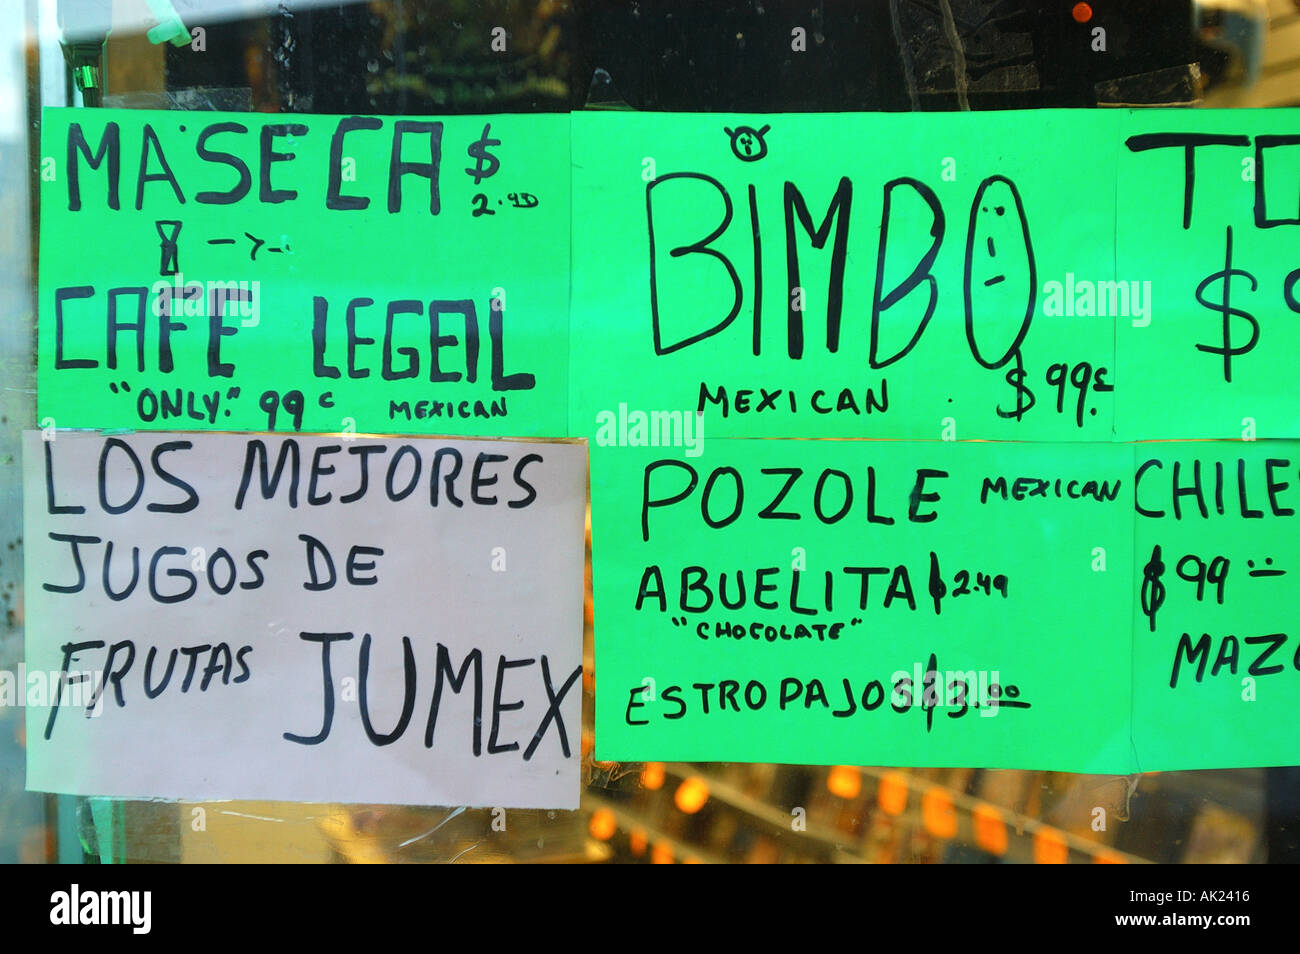 MASECA $
2.49
CAFE LEGAL
"ONLY." 99¢ MEXICAN
BIMBO
MEXICAN $.99¢
LOS MEJORES
JUGOS DE
FRUTAS JUMEX
POZOLE MEXICAN
ABUELITA $2.49
"CHOCOLATE"
ESTROPAJOS $3.00
$99
alamy
AK2416
www.alamy.com